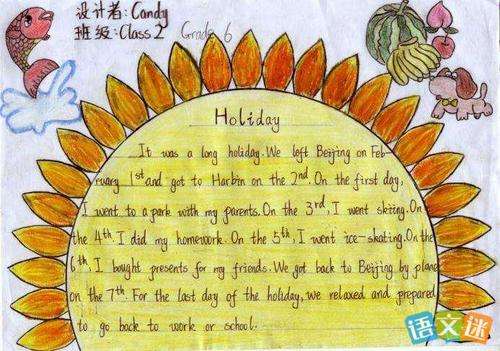 设计者:Candy
班级:Class 2 Grade 6
Holiday
It was a long holiday. We left Beijing on Feb-
ruary 1st and got to Harbin on the 2nd. On the first day,
I went to a park with my parents. On the 3rd, I went skiing. On
the 4th, I did my homework. On the 5th, I went ice-skating. On the
6th, I bought presents for my friends. We got back to Beijing by plane
on the 7th. For the last day of the holiday, we relaxed and prepared
to go back to work or school.
语文迷